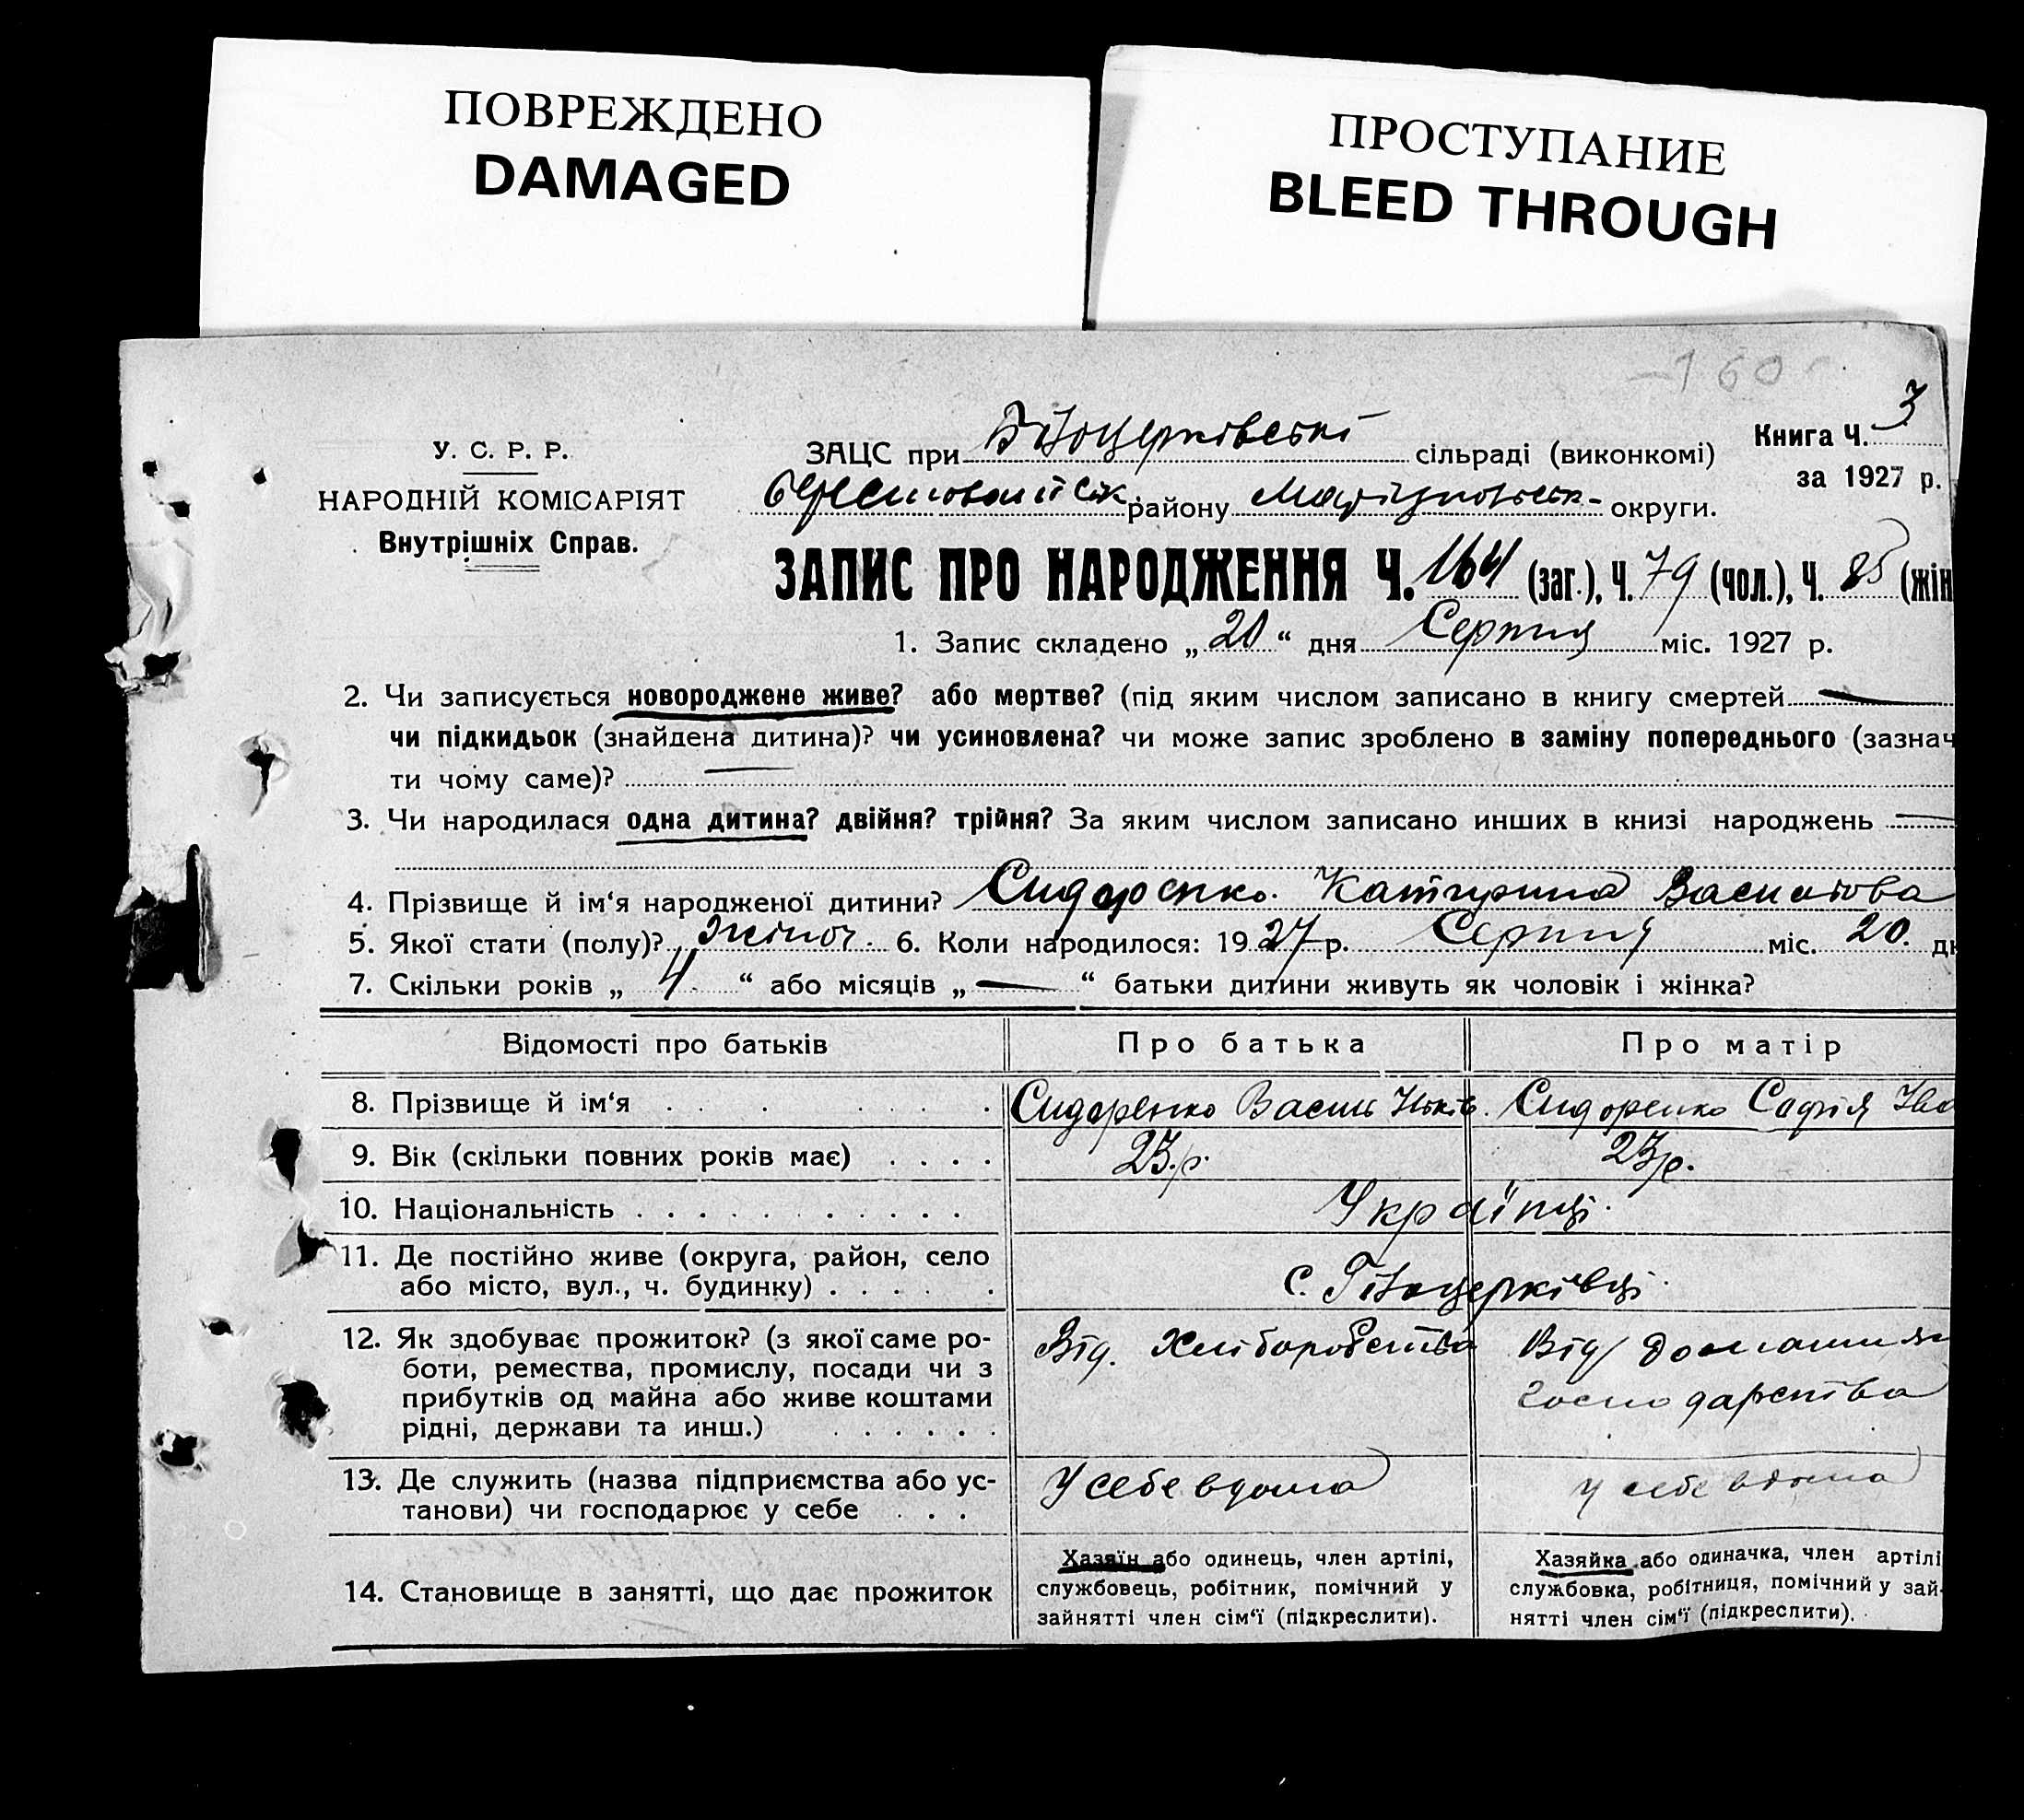 ПОВРЕЖДЕНО
DAMAGED
ПРОСТУПАНИЕ
BLEED THROUGH
160
У. С. Р. Р.
НАРОДНІЙ КОМІСАРІЯТ
Внутрішніх Справ.
ЗАЦС при Білоцерківські сільраді (виконкомі)
Книга Ч. 3
за 1927 р.
району округи.
ЗАПИС ПРО НАРОДЖЕННЯ Ч. 164 (заг.), Ч. 79 (чол.), Ч. 85 (жін
1. Запис складено „ 20 “ дня Серпня міс. 1927 р.
2. Чи записується новороджене живе? або мертве? (під яким числом записано в книгу смертей —
чи підкидьок (знайдена дитина)? чи усиновлена? чи може запис зроблено в заміну попереднього (зазнач
ти чому саме)? —
3. Чи народилася одна дитина? двійня? трійня? За яким числом записано инших в книзі народжень —
4. Прізвище й ім‘я народженої дитини? Сидоренко Катерина Василова
5. Якої стати (полу)? жіноч. 6. Коли народилося: 1927 р. Серпня міс. 20. дн
7. Скільки років „ 4 “ або місяців „ — “ батьки дитини живуть як чоловік і жінка?
Відомості про батьків Про батька Про матір
8. Прізвище й ім‘я Сидоренко Василь Сидоренко Софія Іва
9. Вік (скільки повних років має) 23.р. 23р.
10. Національність Українці.
11. Де постійно живе (округа, район, село
або місто, вул., ч. будинку) с. Білоцерківці.
12. Як здобуває прожиток? (з якої саме ро-
боти, ремества, промислу, посади чи з
прибутків од майна або живе коштами
рідні, держави та инш.)
Від. Хліборобства
Від домашнь
господарства
13. Де служить (назва підприємства або ус-
танови) чи господарює у себе
У себе вдома
у себе вдома
14. Становище в занятті, що дає прожиток
Хазяїн або одинець, член артілі,
службовець, робітник, помічний у
зайнятті член сім‘ї (підкреслити).
Хазяйка або одиначка, член артілі
службовка, робітниця, помічний у зай-
нятті член сім‘ї (підкреслити).